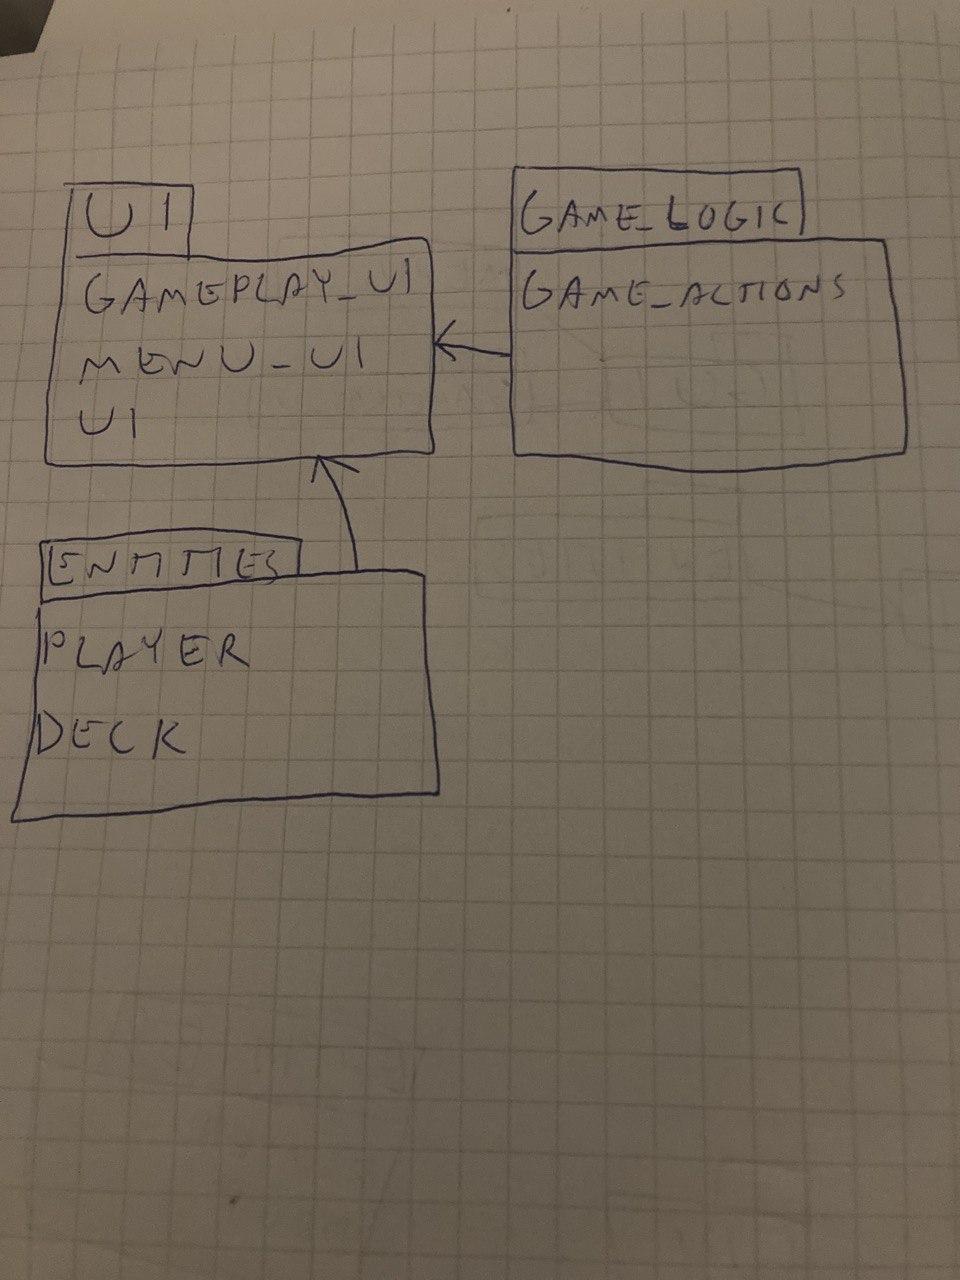 UI
GAMEPLAY_UI
MENU_UI
UI
GAME_LOGIC
GAME_ACTIONS
ENTITIES
PLAYER
DECK